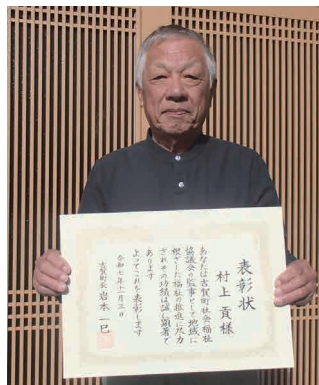 表彰状
村上貢様
あなたは古賀町社会福祉
協議会の監事として地域に
根ざした福祉の推進に尽力
されその功績は誠に顕著で
あります
よってこれを表彰します
令和七年十一月三日
古賀町長 岩本一巳